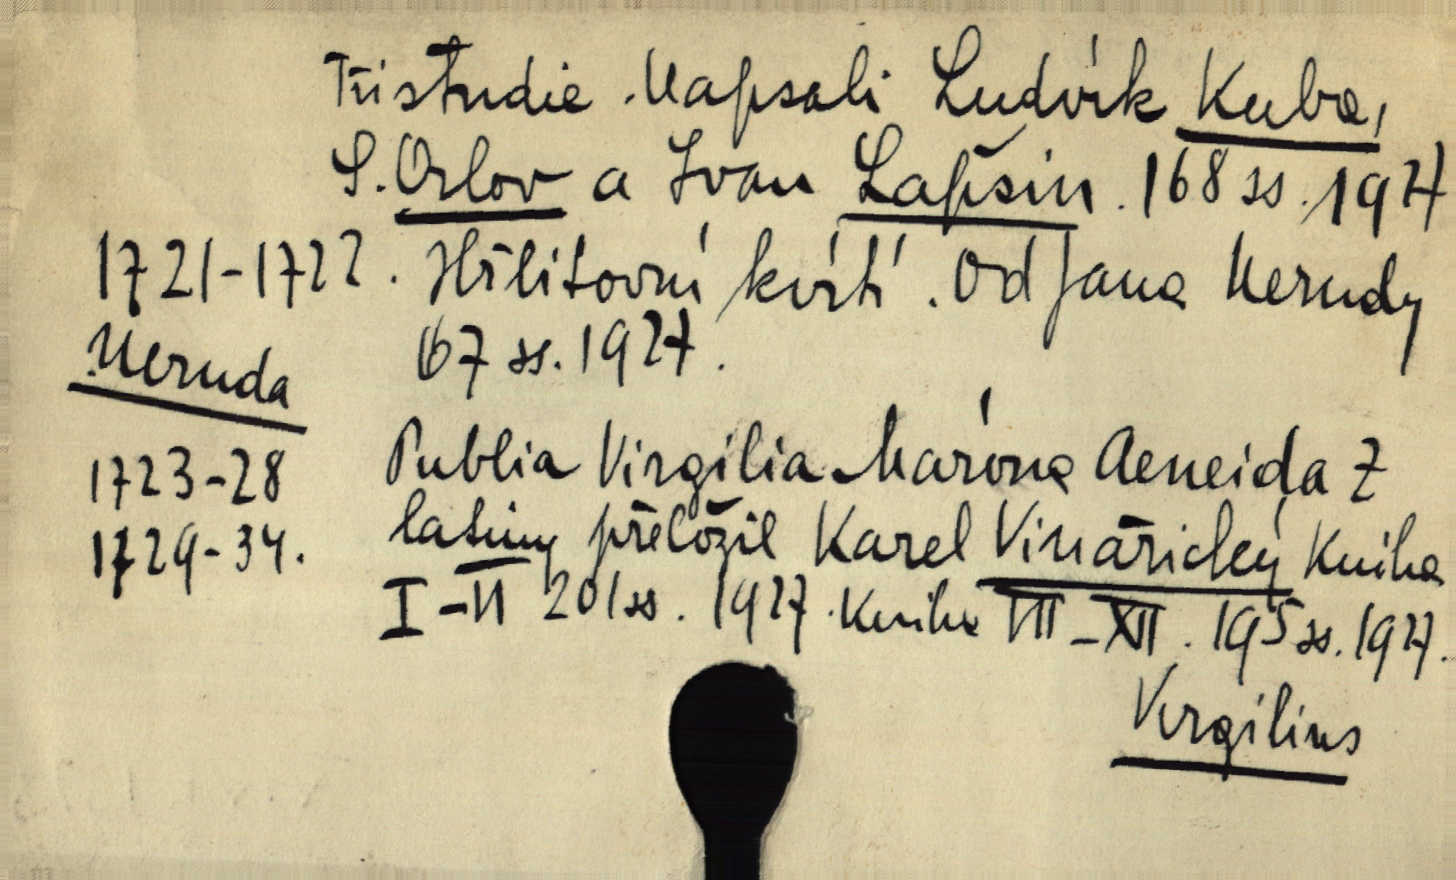 Tři studie. Napsali Ludvík Kuba,
S. Orlov a Ivan Lapšin. 168 ss. 1927
1721-1722. Hřbitovní kvítí. Od Jana Nerudy
Neruda 67 ss. 1927.
1723-28 Publia Virgilia Maróna Aeneida Z
1729-34. latiny přeložil Karel Vinařický Kniha
I-VI 201 ss. 1927. Kniha VII-XII. 195 ss. 1927.
Virgilius